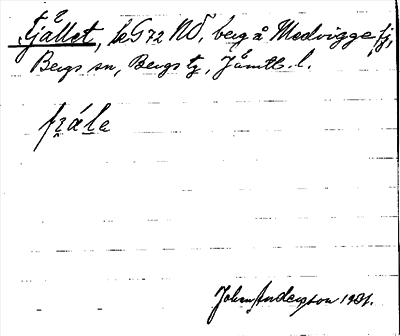 Fjället, kG72 NO, berg å Medvigge fj,
Bergs sn, Bergs tg, Jämtl. l.
fɪ̯álɛ
John Anderzon 1931.